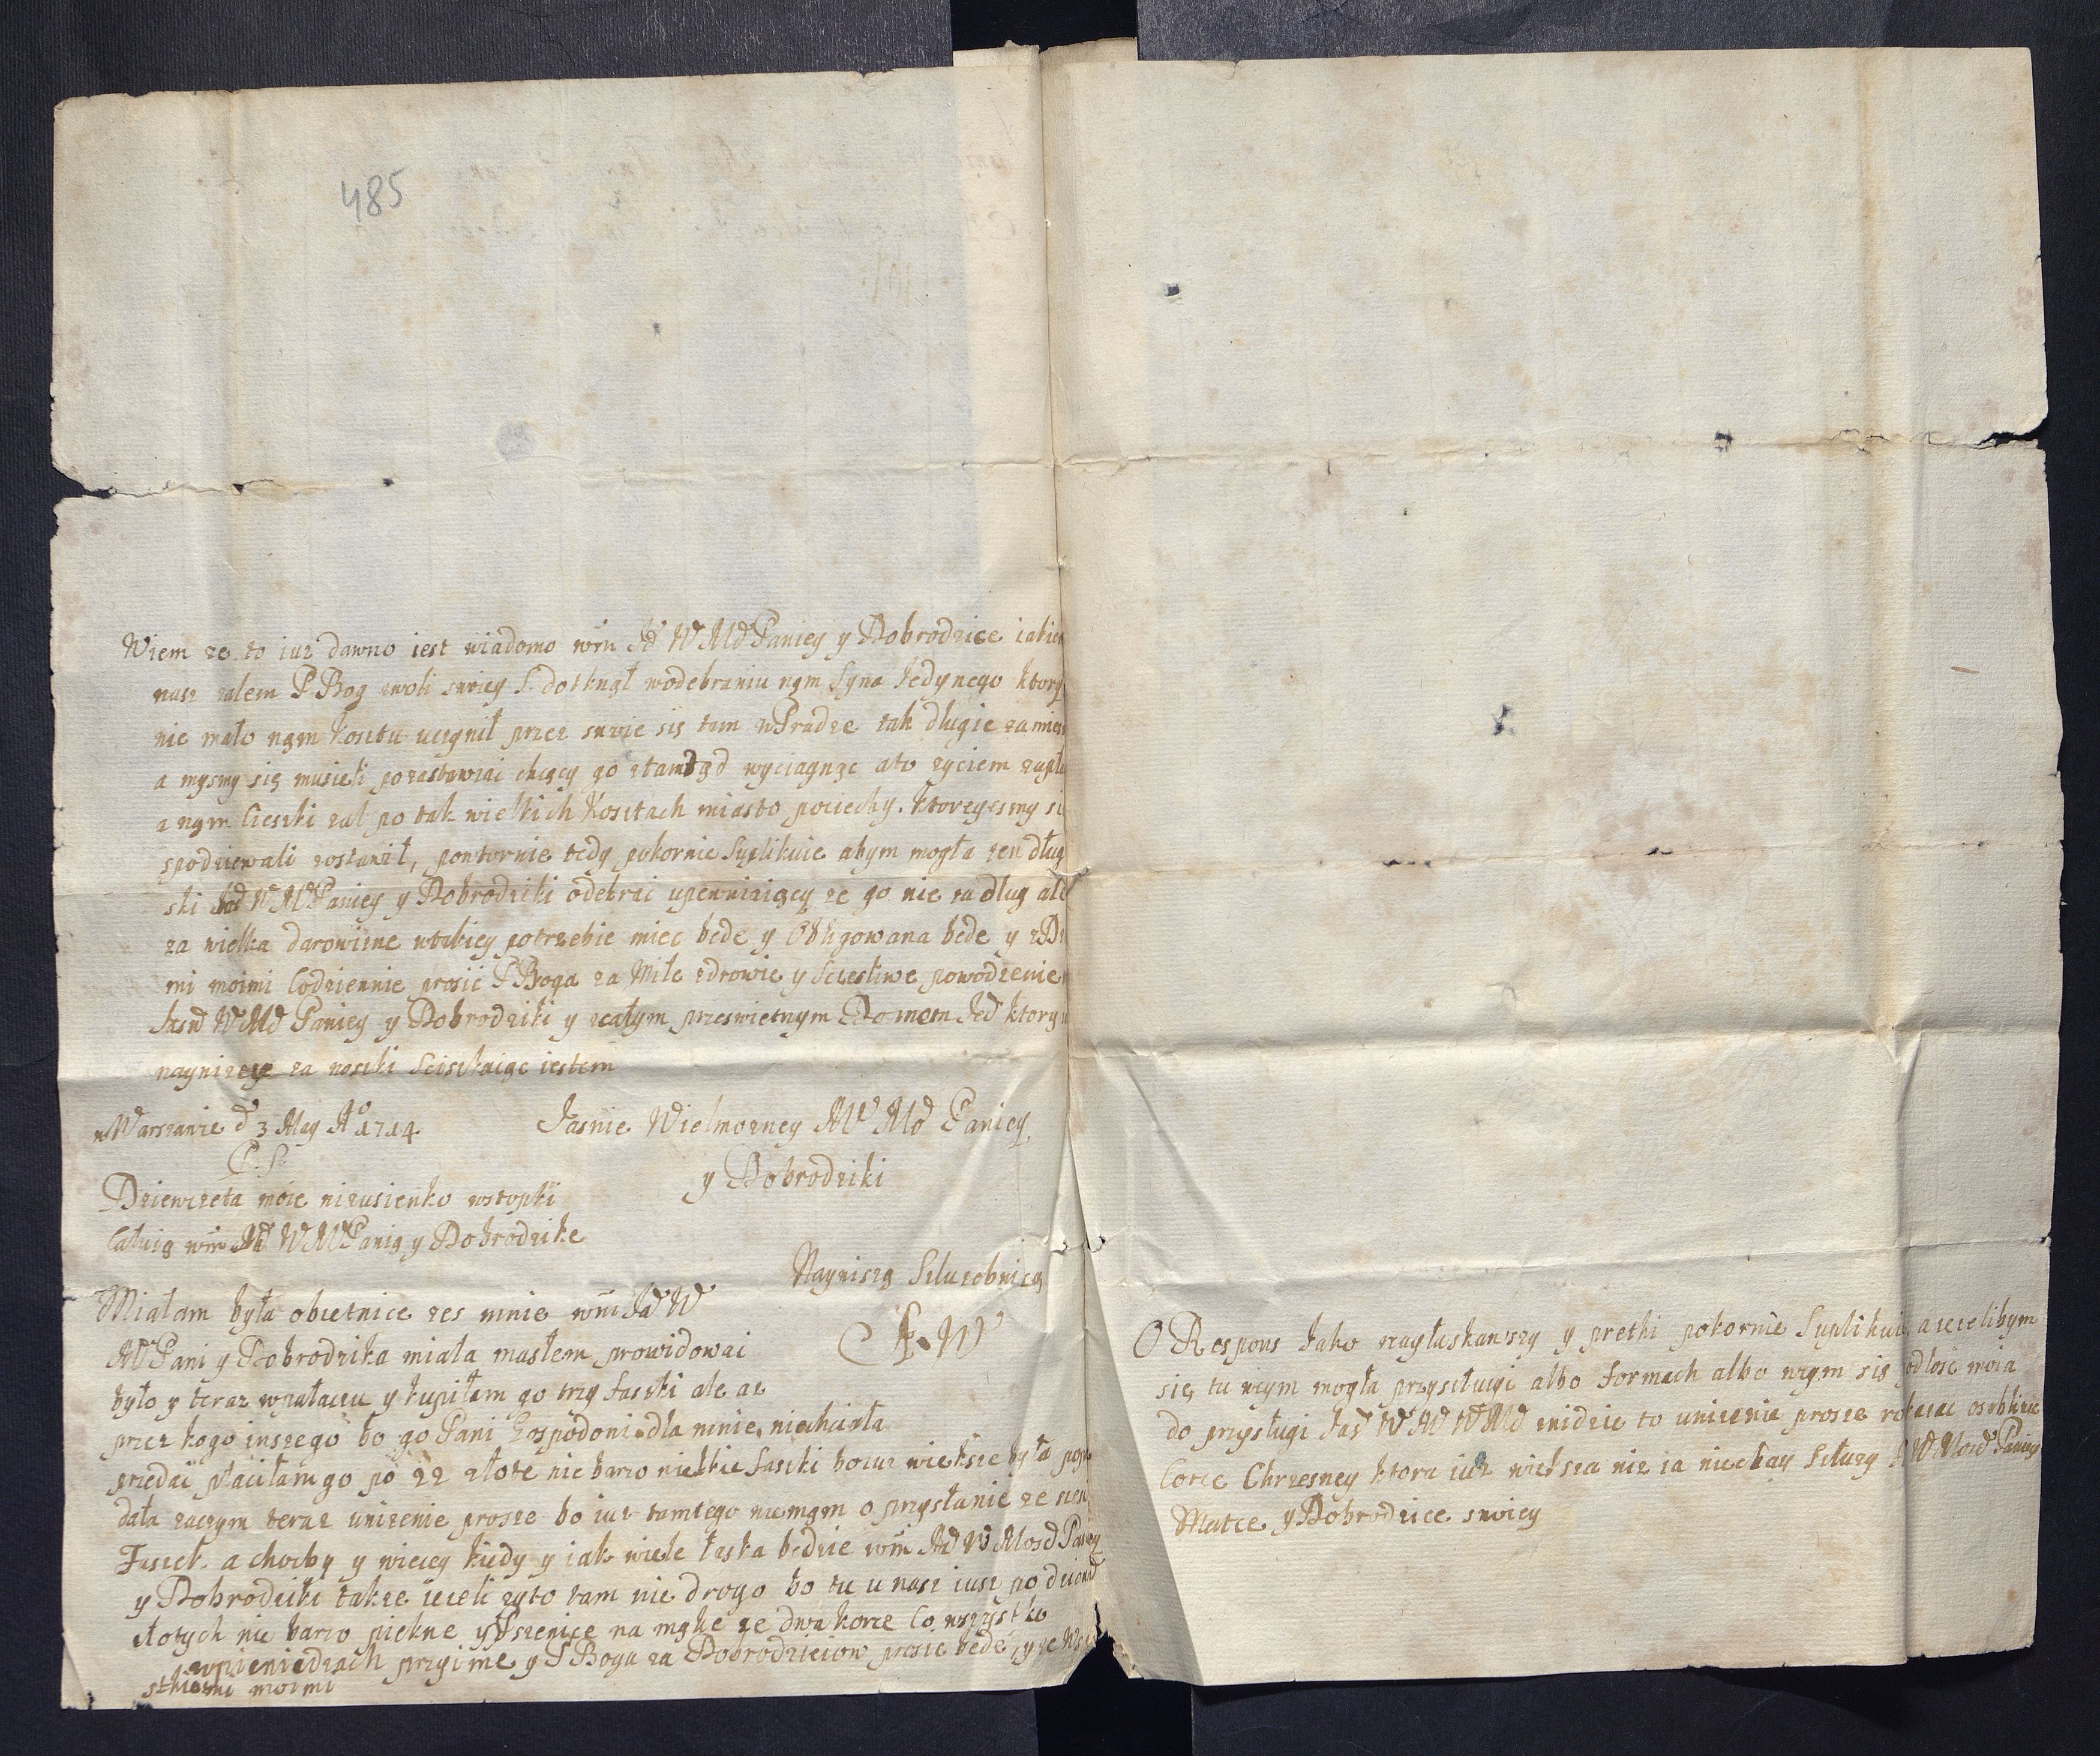 485
Wiem ze to iuz dawno iest wiadomo wm Jd W Md Paniey y Dobrodzice iakie
nasz zalem P Bog zwoli swiey S. dotknął wodebraniu nąm Syna Jedynego ktory
nie mało nąm Kosztu uczynił przez swoie się tam w Pradze tak długie zamies
a mysmy się musieli pozastawiai chcący go ztamtąd wyciagnąc ato zyciem zapła
a nąm Cieszki zal po tak wielkich Kosztach miasto pociechy. ktoreyesmy si
spodziewali zostawił, powtornie tedy pokornie Suplikuie abym mogła ten dług
ski Jad W M Paniey y Dobrodziki odebrać upewniaiący ze go nie za dług ale
za wielka darowizne wtakiey potrzebie miec bede y Obligowana bede y z Dz
mi moimi Codziennie prosić P Boga za Miłe zdrowie y Sczesliwe powodzenie
Jasnd W Md Paniey y Dobrodziki y zcałym przeswietnym Domem Jed ktory
nayniżey za noszki Sciszkaige iestem
w Warszawie d 3 May Ao 1714
Jasnie Wielmozney M Md Paniey
y Dobrodziki
P. S.
Dziewczeta moie nizusienko zstopki
Całuią wm Jad W M Panią y Dobrodzike
Nayniszą Szluzobnicą
K. W
Miałam była obietnice zes mnie wm Jad W
M Pani y Dobrodzika miała masłem prowidowai
było y teraz wpałaczu y kupiłam go trzy faszki ale az
przez kogo inszego bo go Pani Gospodoni dla mnie niechciała
przedać płaciłam go po 22 złote nie barzo wielkie faszki bo iuz wieksze była poprz
dała zaczym teraz unizenie prosze bo iuz tamtego niemąm o przysłanie ze szes
Faszek a choćby y wiecey kiedy y iak wiele łaska bedzie wm Jad W Mosd Paniey
y Dobrodziki takze iezeli zyto tam nie drogo bo tu u nasz iusz po dziewie
złotych nie barzo piekne y Pszenice na mąke ze dwa korce Co wszystko
wpieniedzach przyime y P Boga za Dobrodzieiow prosic bede y ze Wszy
stkiemi moimi
O Respons Jako nayłaskawszy y pretki pokornie Suplikuie a iezelibym
się tu wczym mogła przyszłuiyi albo Formach albo wczym się podłosc moia
do przysługi Jad W M W Md znidzie to unizenie prosze rozkazac osobliwie
Corce Chrzesney ktora iuz wieksza niz ia niechay Szłuzy J W Mosd Paniey
Matce y Dobrodzice swoiey